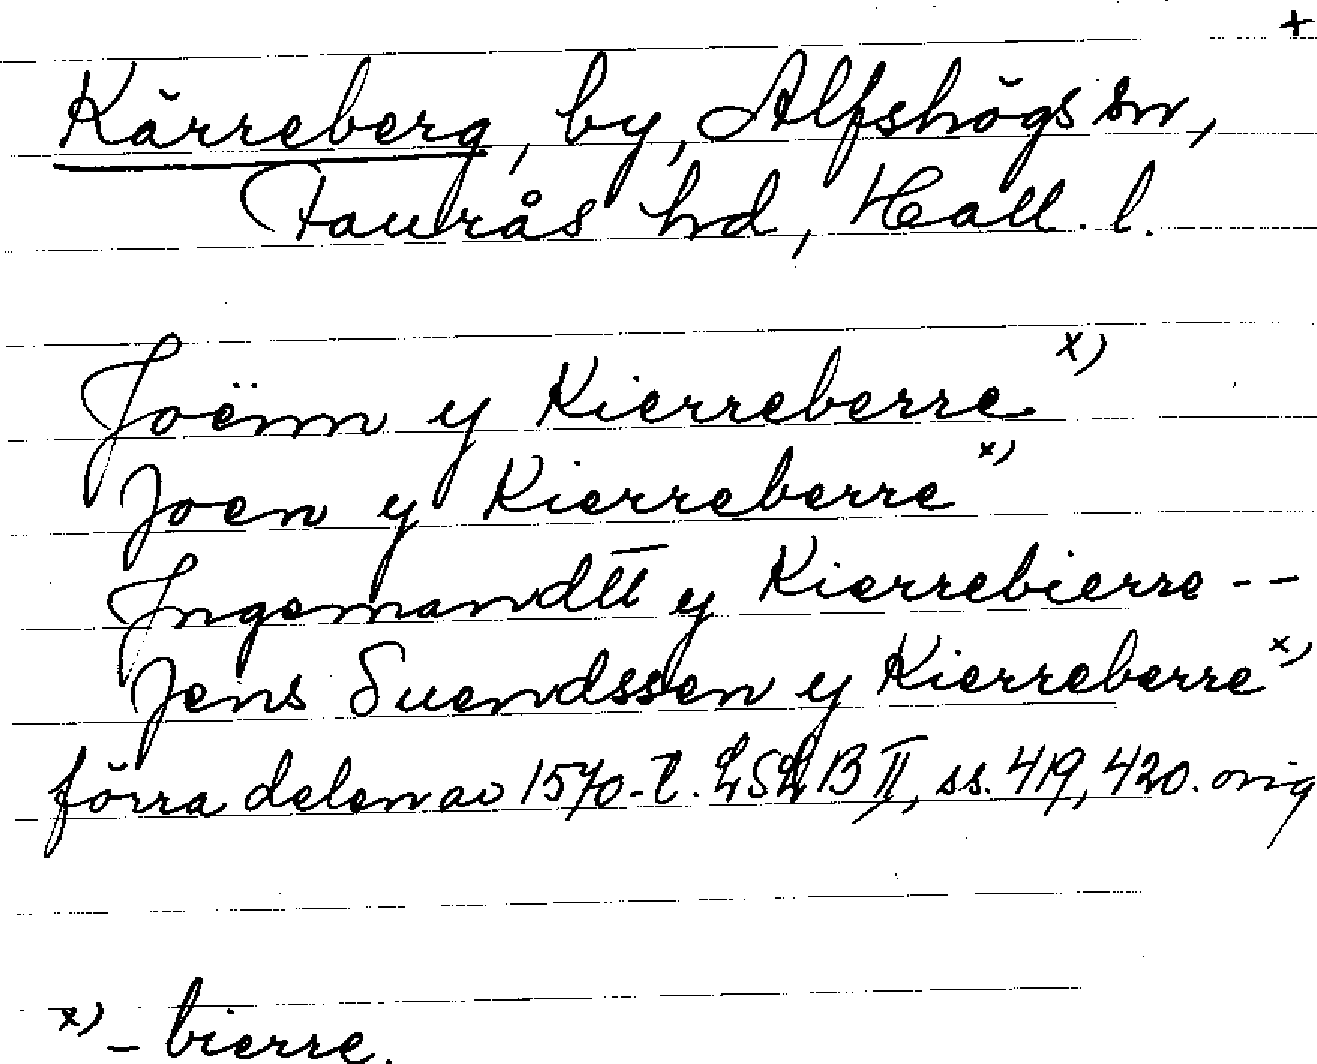 +
Kärreberg, by, Alfshögs sn,
Faurås hd, Hall. l.
Joënn y Kierreberre x)
Joen y Kierreberre x)
Ingemandtt y Kierrebierre --
Jens Suendssen y Kierreberre x)
förra delen av 1570-t. LSLB II, ss. 419, 420. orig
x) - bierre.